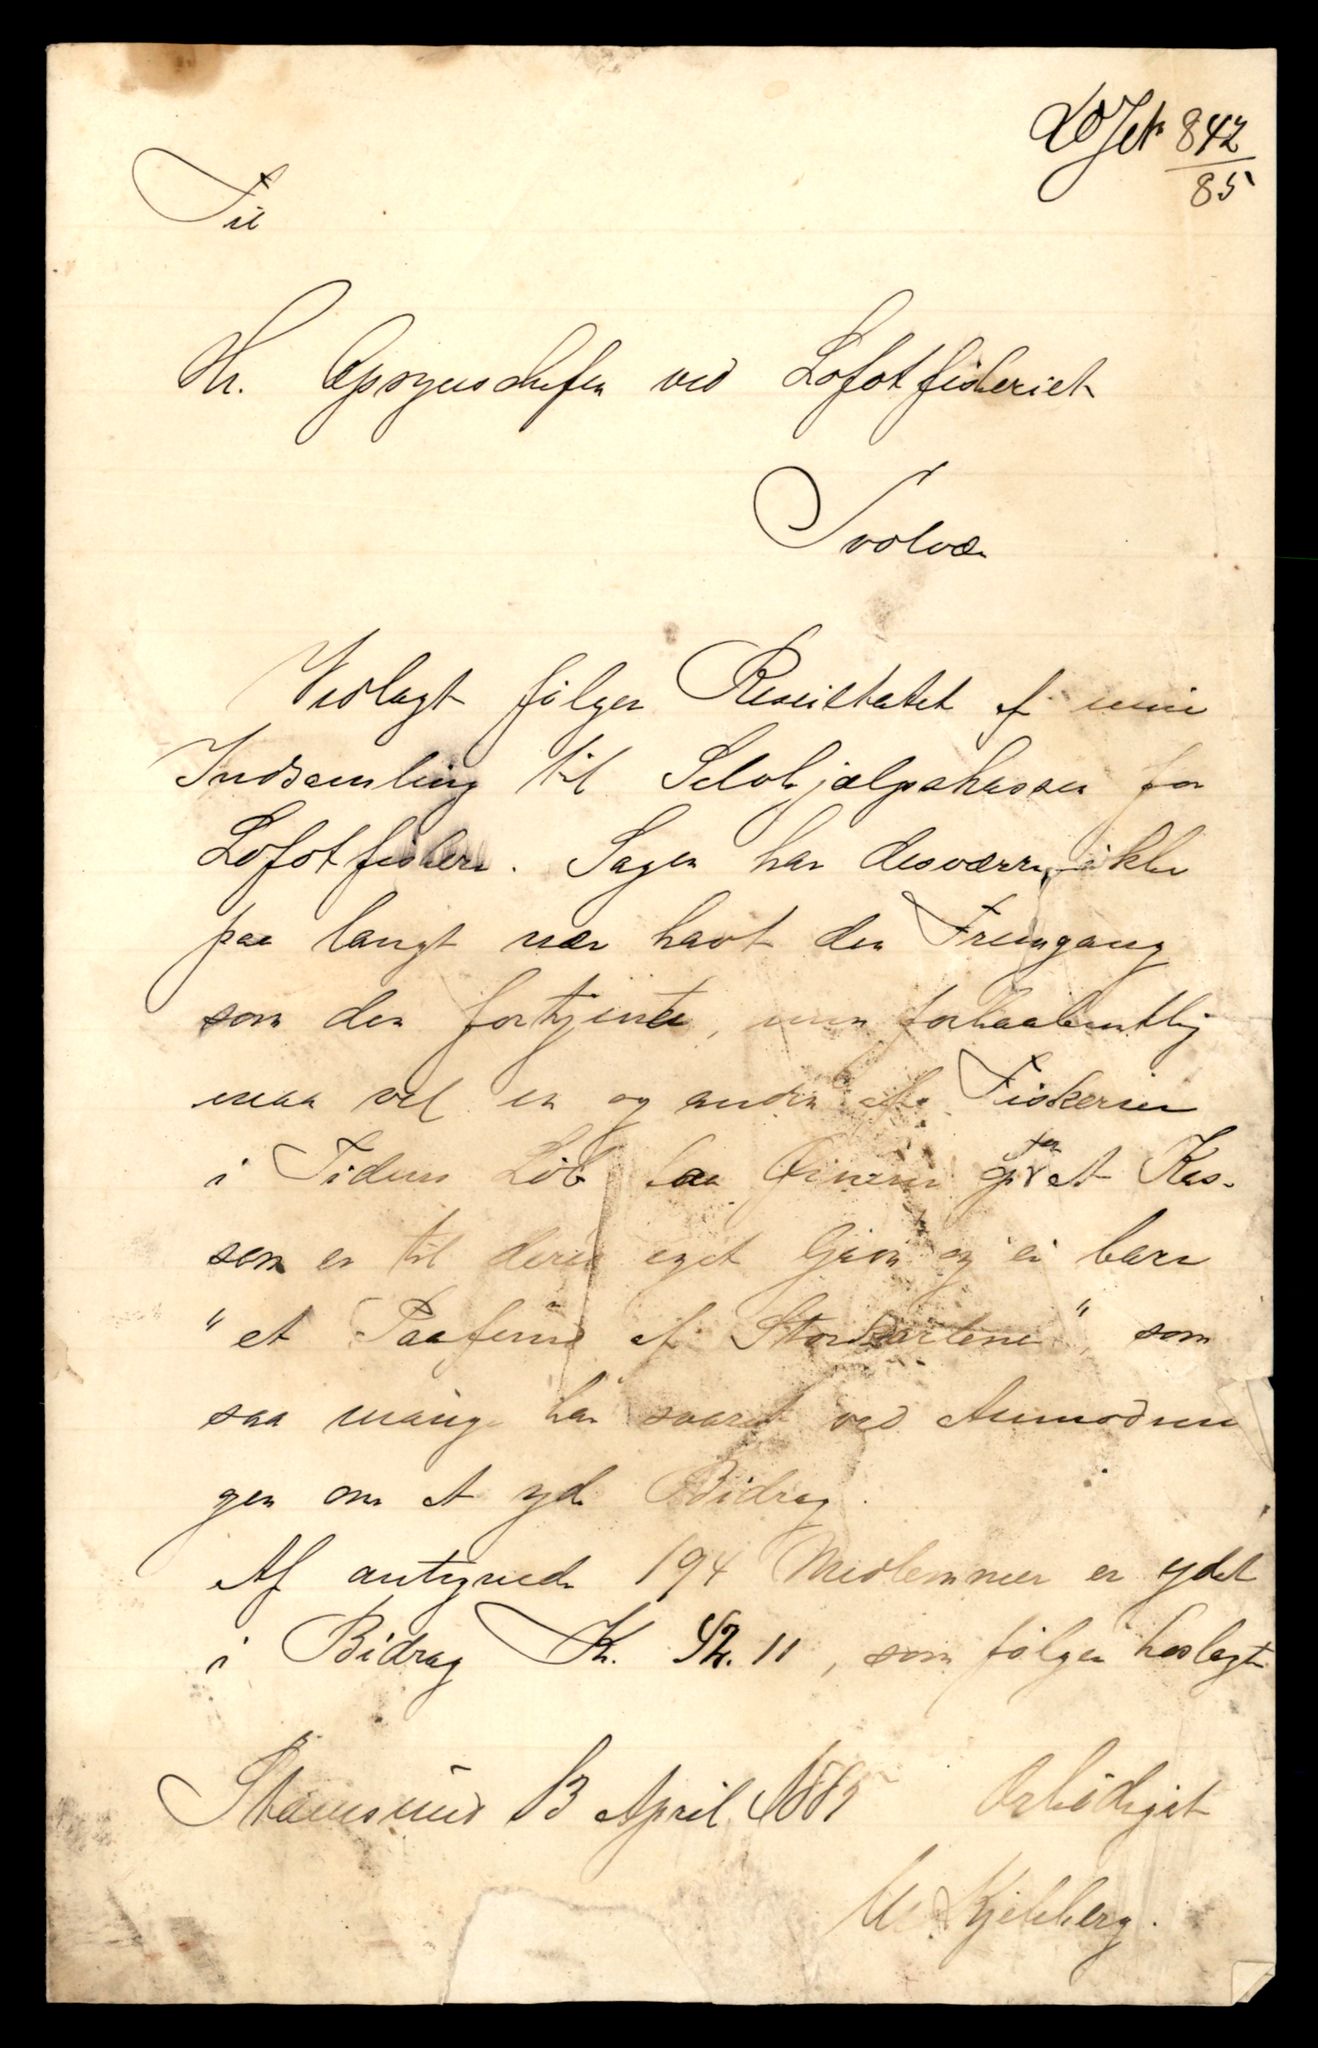 842
85
Til
Hr. Opsynschefen ved Lofotfiskeriet
Svolvær
Vedlagt følger Resultatet af min
Indsamling til Selvhjælpskassen for
Lofotfiskere. Sagen har desværre ikke
paa langt nær havt den Fremgang
som den fortjente, men forhaabentlig
maa vel en og anden af Fiskerne
i Tidens Løb faa at Kas-
sen er til deres eget Gavn og ei bare
"et Paafund af Storkarlene", som
saa mange har svaret ved Anmodnin
gen om at yde Bidrag.
Af antegnede 194 Medlemmer er ydet
i Bidrag Kr. 11, som følger hoslagt
Stamsund 13 April 1885 Ærbødigst
Kjelsberg.